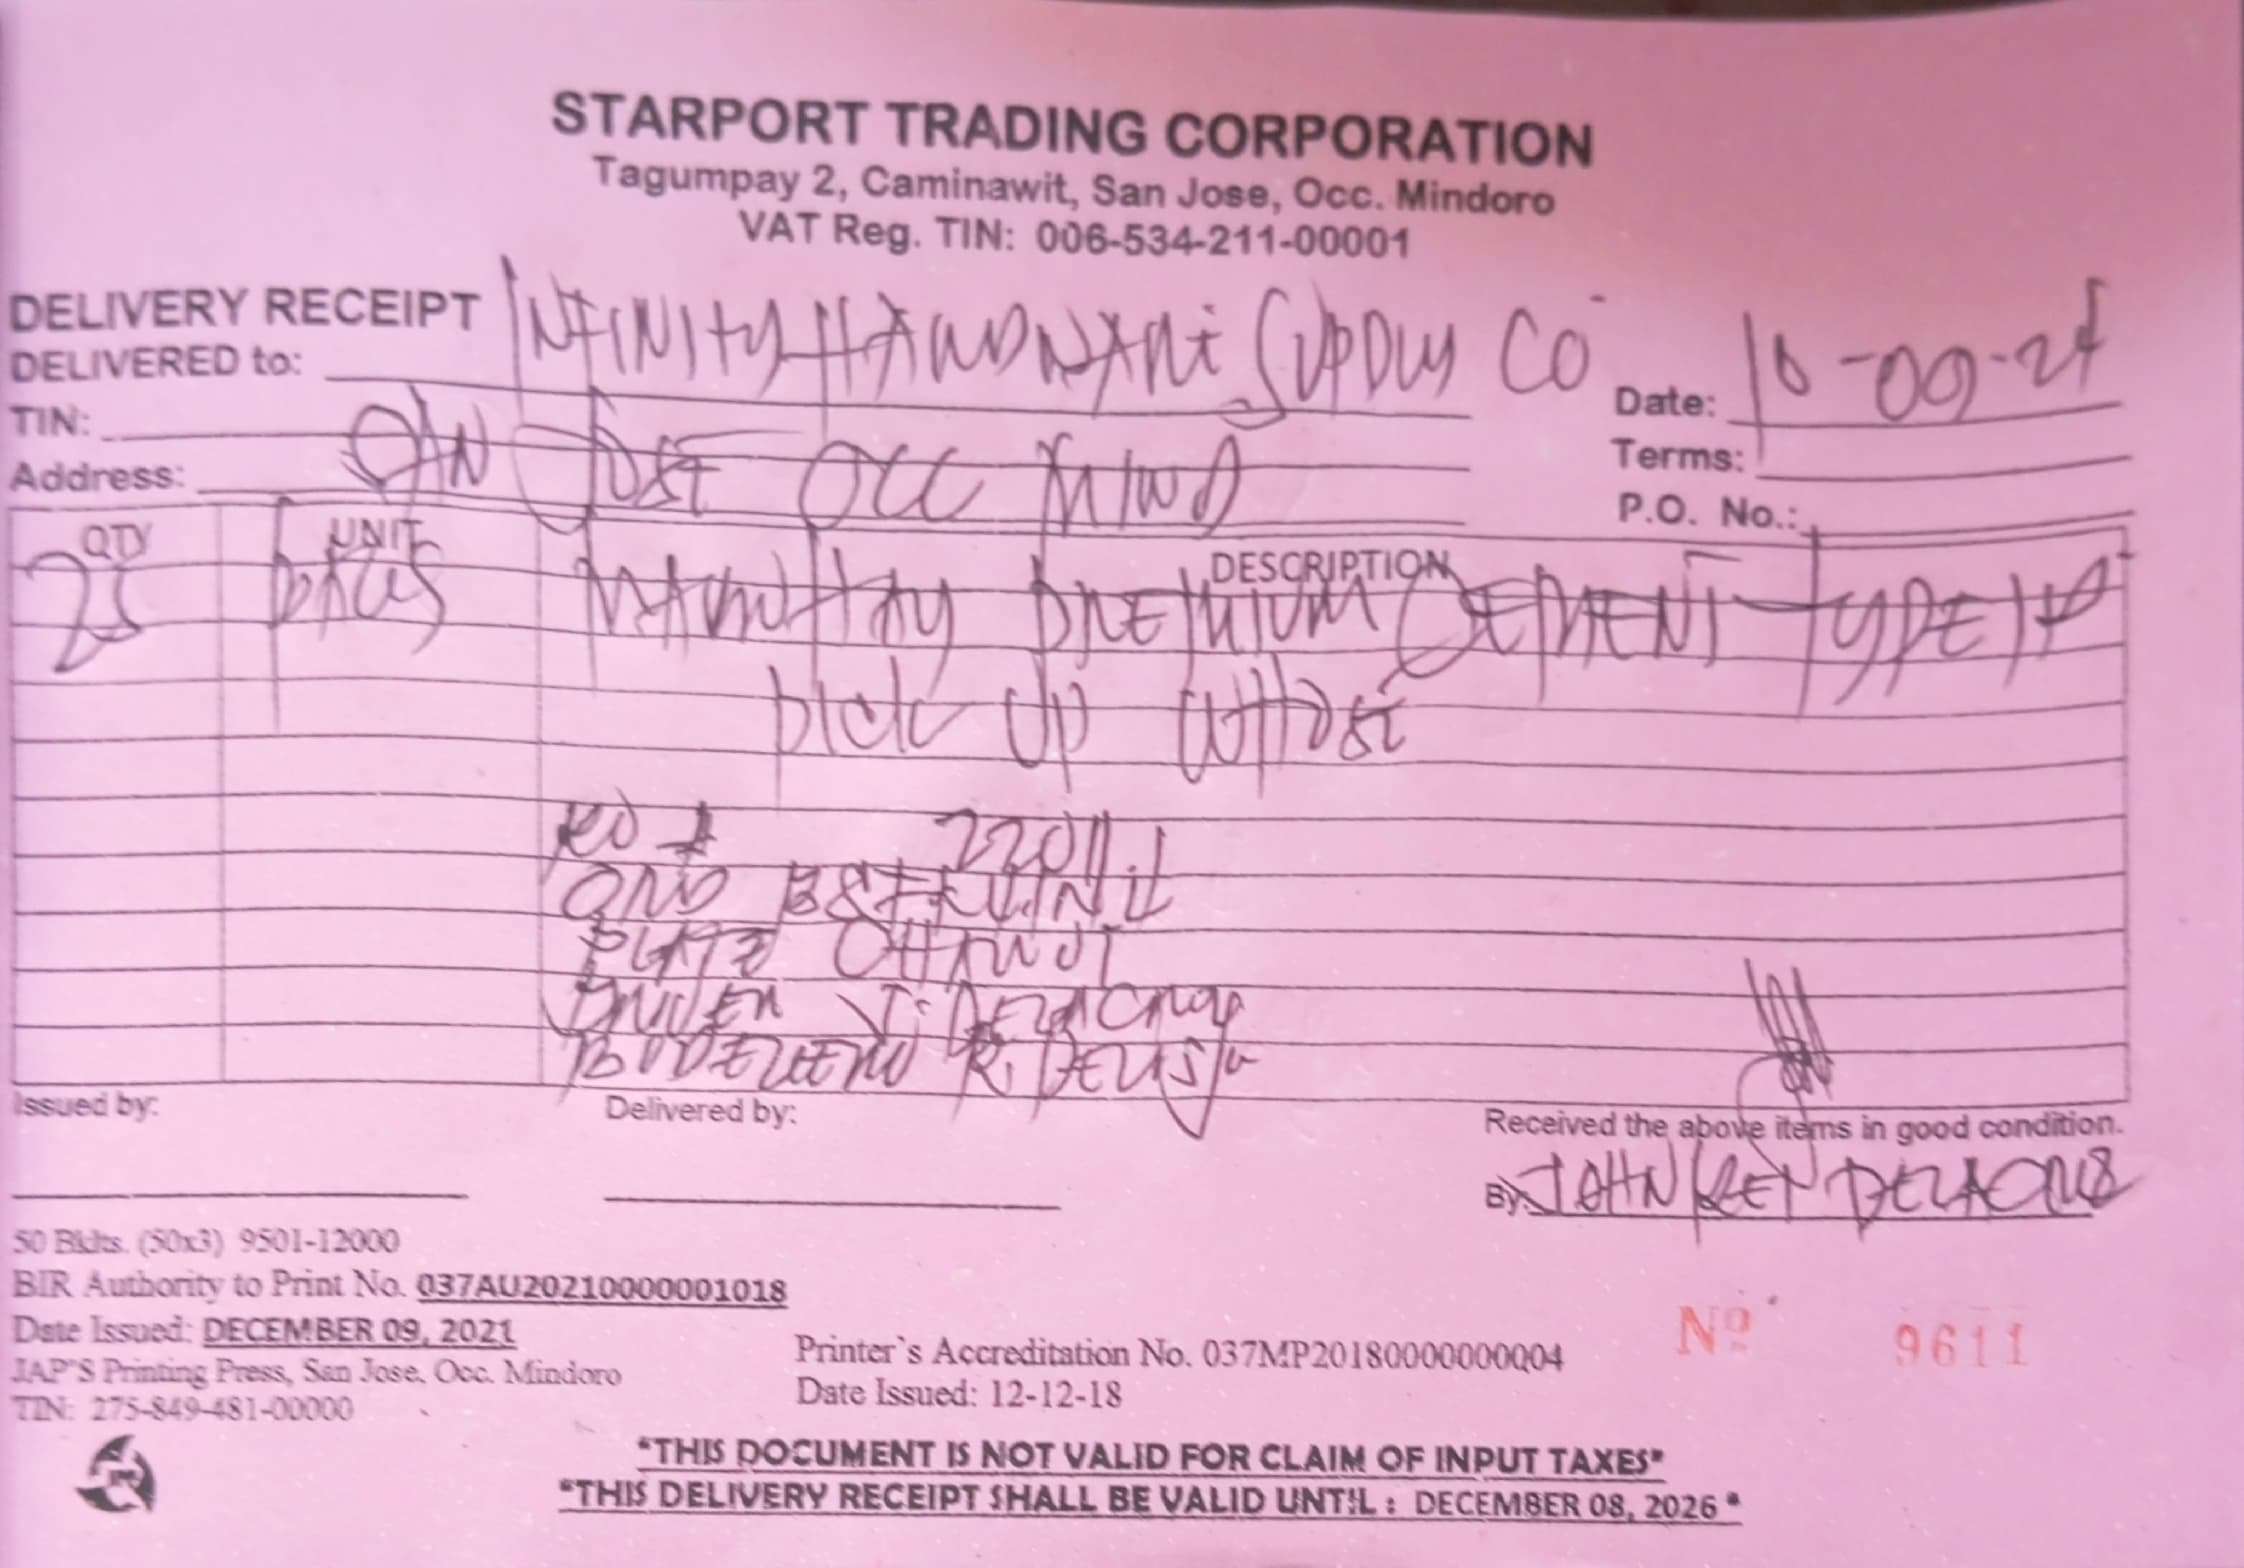 STARPORT TRADING CORPORATION
Tagumpay 2, Caminawit, San Jose, Occ. Mindoro
VAT Reg. TIN: 006-534-211-00001
DELIVERY RECEIPT
DELIVERED to: INFINITY HARDWARE SUPPLY CO
Date: 10-09-24
TIN:
Terms:
Address: SAN JOSE OCC MIND
P.O. No.:
QTY UNIT DESCRIPTION
25 BAGS PREMIUM CEMENT TYPE 1P
PICK UP WHOSE
22011
PLATE
DRIVER J. DELA CRUZ
R. DE
Issued by:
Delivered by:
Received the above items in good condition.
By: JOHN
50 Bklts. (50x3) 9501-12000
BIR Authority to Print No. 037AU20210000001018
Date Issued: DECEMBER 09, 2021
JAP'S Printing Press, San Jose. Occ. Mindoro
TIN: 275-849-481-00000
Printer's Accreditation No. 037MP20180000000004
Date Issued: 12-12-18
Nº 9611
"THIS DOCUMENT IS NOT VALID FOR CLAIM OF INPUT TAXES"
"THIS DELIVERY RECEIPT SHALL BE VALID UNTIL : DECEMBER 08, 2026"